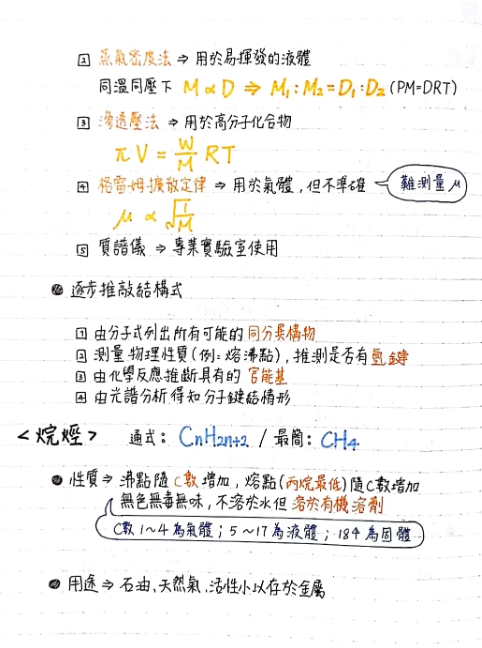 2 蒸氣密度法 ⇒ 用於易揮發的液體
同溫同壓下 M ∝ D ⇒ M₁:M₂=D₁:D₂ (PM=DRT)
3 滲透壓法 ⇒ 用於高分子化合物
πV = W/M RT
4 格雷姆擴散定律 ⇒ 用於氣體,但不準確 難測量μ
μ ∝ √1/M
5 質譜儀 ⇒ 專業實驗室使用
逐步推敲結構式
1 由分子式列出所有可能的同分異構物
2 測量物理性質(例:熔沸點),推測是否有氫鍵
3 由化學反應推斷具有的官能基
4 由光譜分析得知分子鍵結情形
<烷烴> 通式: CnH2n+2 / 最簡: CH₄
性質 ⇒ 沸點隨C數增加,熔點(丙烷最低)隨C數增加
無色無毒無味,不溶於水但溶於有機溶劑
C數1~4為氣體;5~17為液體;18↑為固體
用途 ⇒ 石油、天然氣、活性小以存於金屬